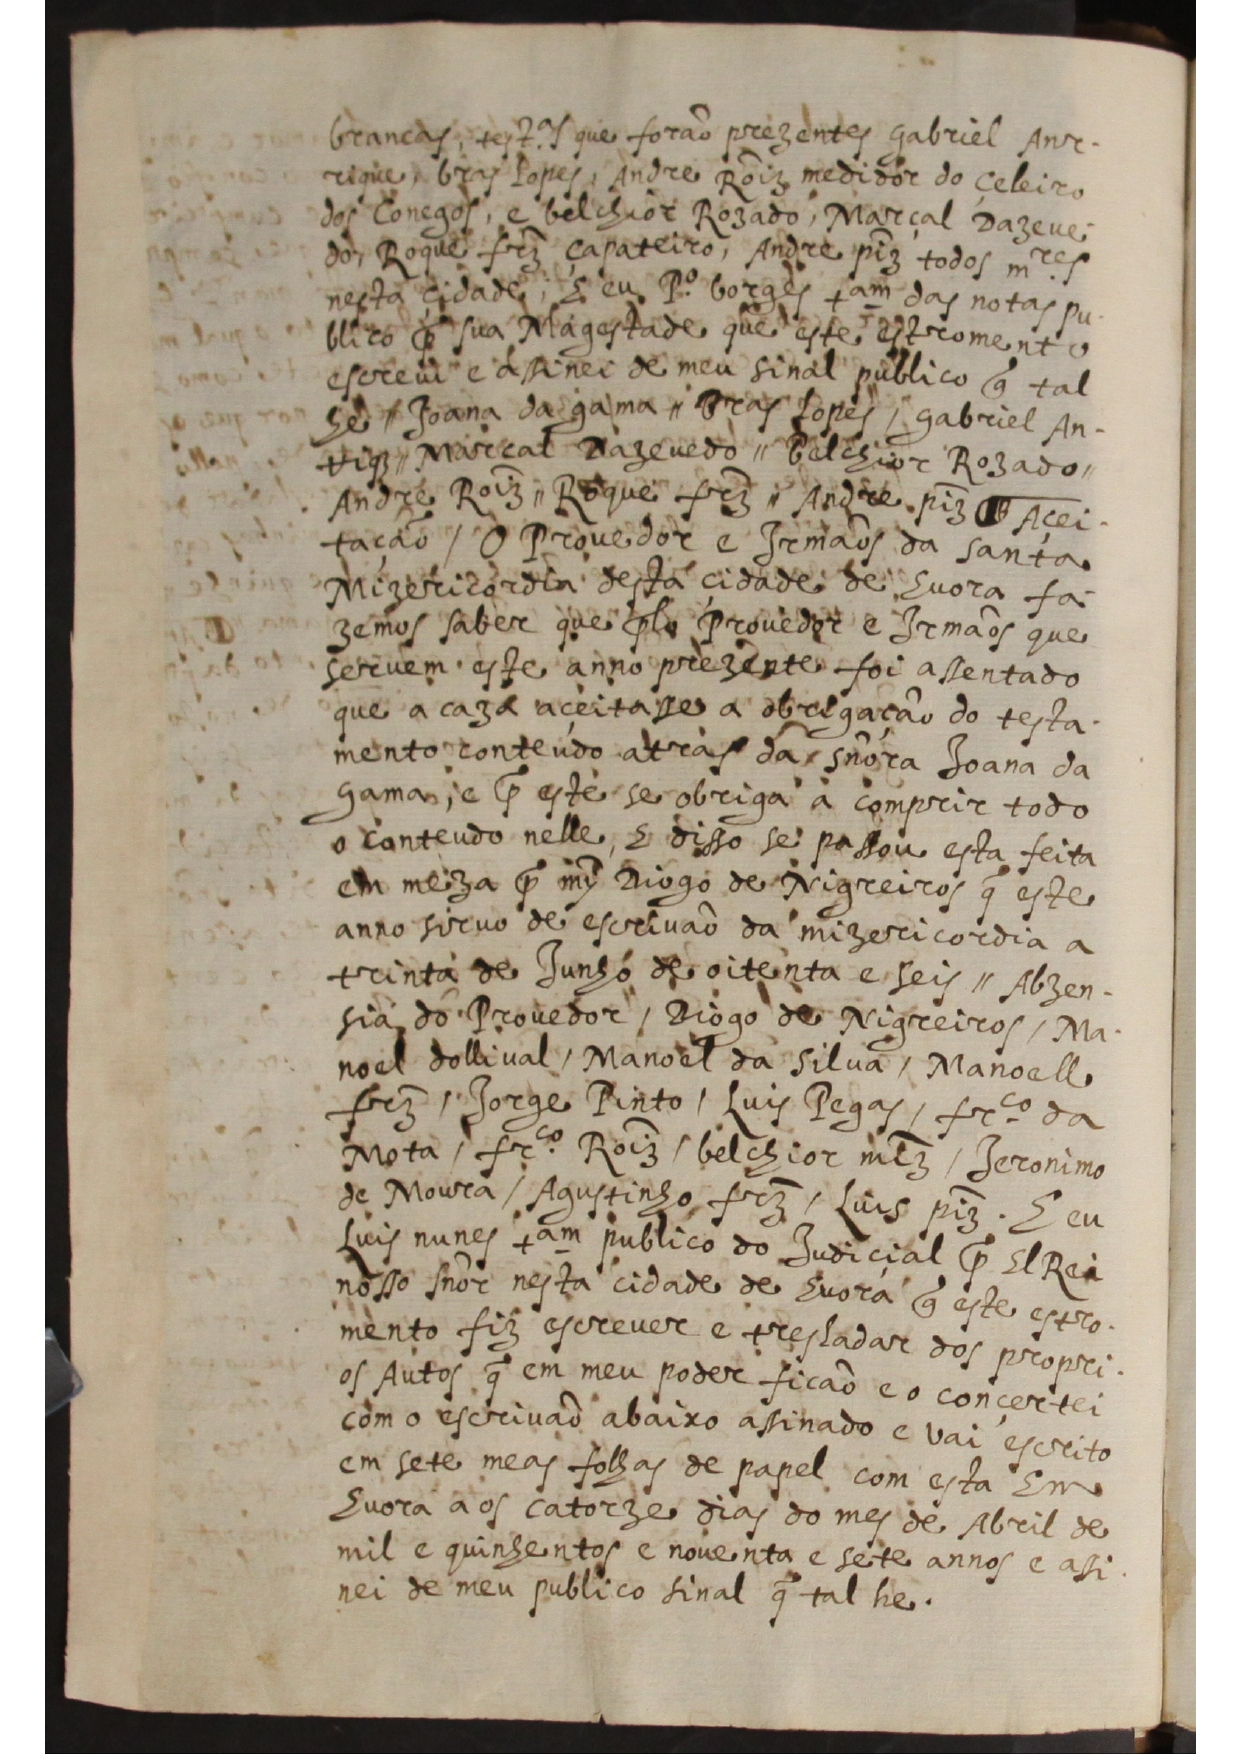 brancas, test.as que forão prezentes Gabriel Anr-
rique, bras Lopes, Andre Roiz medidor do Çeleiro
dos Conegos, e belchior Rozado, Marçal Dazeue-
do, Roque frz Çapateiro, Andre piz todos m.res
nesta çidade, E eu P.o borges tam das notas pu-
blico p sua Magestade que este estromento
escreui e assinei de meu sinal publico q tal
he // Joana da gama // Bras Lopes / gabriel An-
riqz // Marcal Dazeuedo // Belchior Rozado //
Andre Roiz // Roque frz // Andre piz Açei-
tação / O Prouedor e Irmãos da santa
Mizericordia desta çidade de Euora fa-
zemos saber que plo Prouedor e Irmãos que
seruem este anno prezente foi assentado
que a caza aceitasse a obrigação do testa-
mento conteudo atras da snora Joana da
gama, e p este se obriga a comprir todo
o conteudo nelle, E disso se passou esta feita
em meza p my Diogo de Nigreiros q este
anno siruo de escriuão da mizericordia a
trinta de Junho de oitenta e seis // Abzen-
sia do Prouedor / Diogo de Nigreiros / Ma-
noel dolliual / Manoel da Silua / Manoell
frz / Jorge Pinto / Luis Pegas / fr.co da
Mota / fr.co Roiz / belchior miz / Jeronimo
de Moura / Agustinho frz / Luis piz. E eu
Luis nunes tam publico do Judicial p El Rei
nosso snor nesta cidade de Euora q este estro-
mento fiz escreuer e tresladar dos propri-
os Autos q em meu poder ficão e o conçertei
com o escriuão abaixo assinado e vai escrito
em sete meas folhas de papel com esta Em
Euora aos catorze dias do mes de Abril de
mil e quinhentos e nouenta e sete annos e assi-
nei de meu publico sinal q tal he.